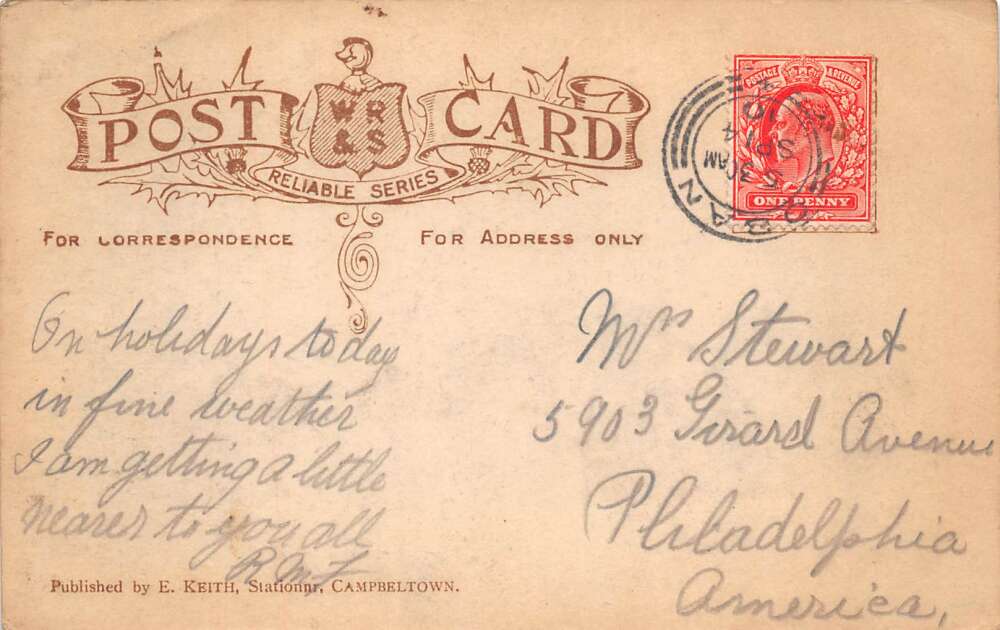 POST CARD
W R & S
RELIABLE SERIES
FOR CORRESPONDENCE
FOR ADDRESS ONLY
POSTAGE & REVENUE
ONE PENNY
OBAN
5 30AM
SP 14
10
On holidays today
in fine weather
I am getting a little
nearer to you all
Mrs Stewart
5903 Girard Avenue
Philadelphia
America,
Published by E. KEITH, Stationnr, CAMPBELTOWN.